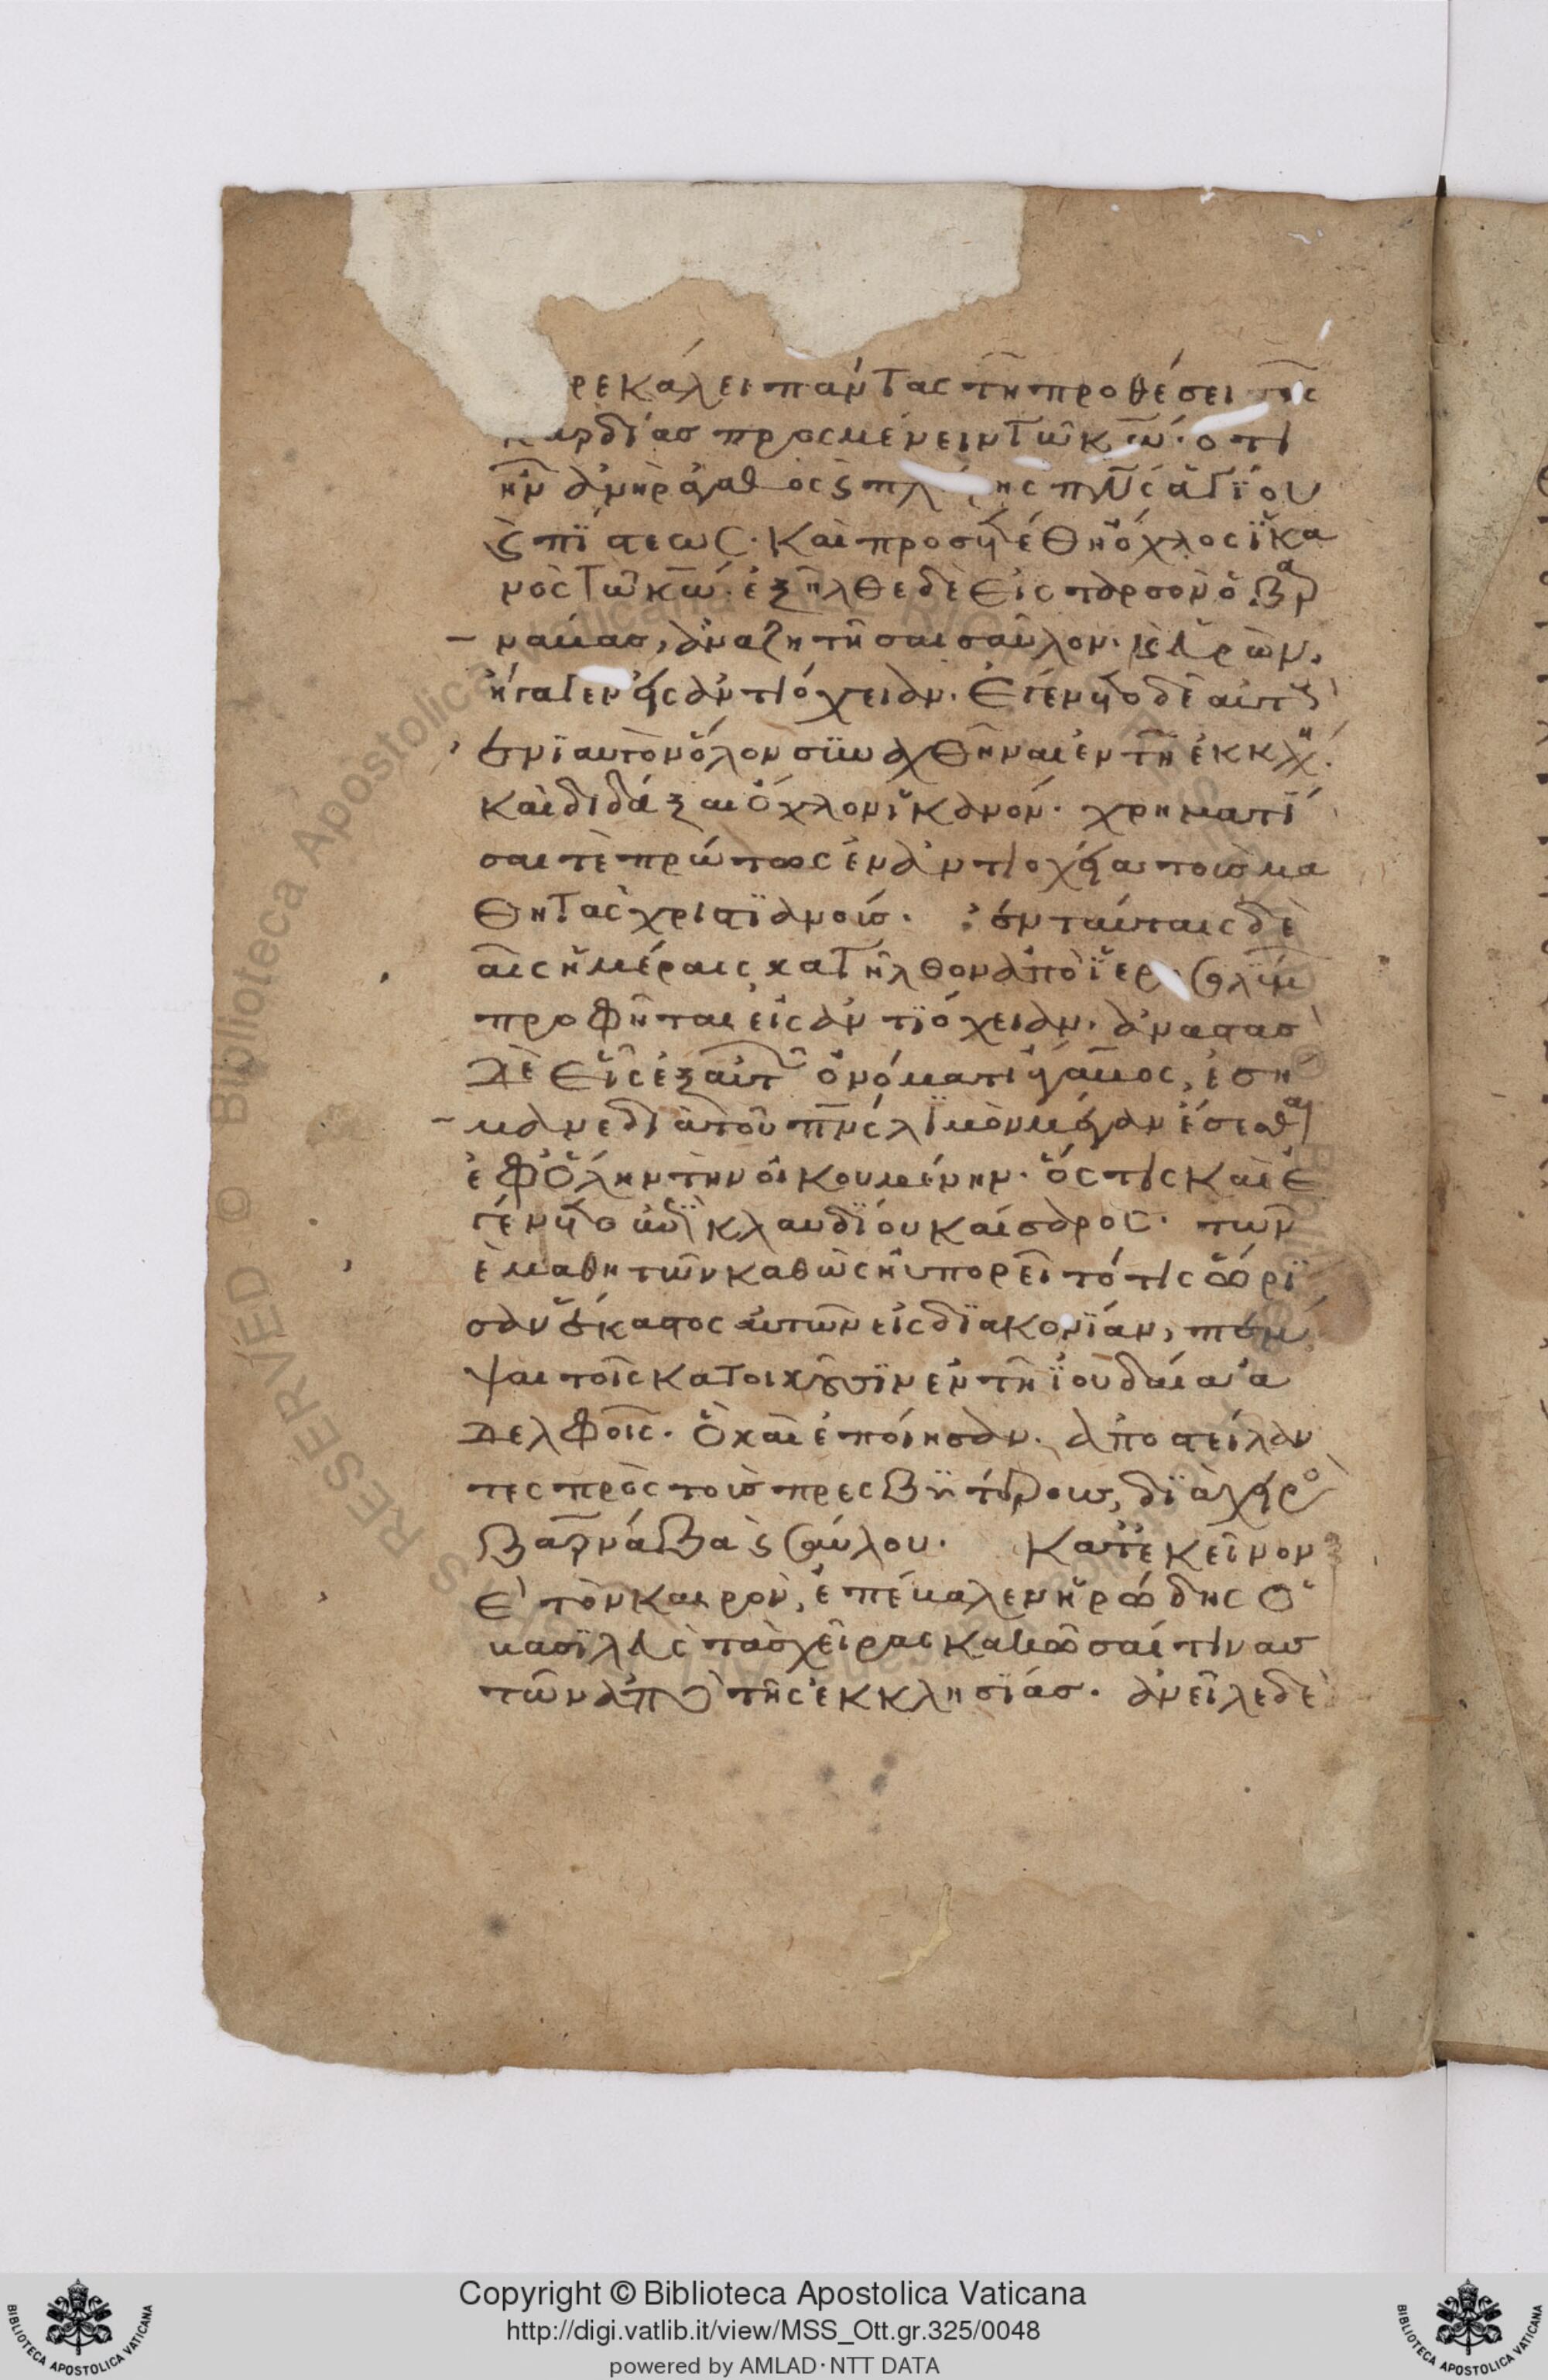 ρεκάλει πάντας τῆ προθέσει τῆς
καρδίας προσμένειν τῶ κω̅. ὅτι
ἦν ἀνὴρ ἀγαθὸς ϗ πλ ης πν̅ς ἁγΐου
ϗ πΐστεως. Καὶ προσετέθη ὄχλος ϊκα
νὸς τῶ κω̅. ἐξῆλθε δὲ εἰς ταρσὸν ὁ βαρ
νάβας, ἀναζητῆσαι σαῦλον. ϗ εὑρὼν,
ἤγαγεν εἰς ἀντιόχειαν. Ἐγένετο δὲ αὐτοὺς
ἐνϊαυτὸν ὅλον συναχθῆναι ἐν τῆ ἐκκλη
καὶ διδάξαι ὄχλον ϊκανόν. χρηματί
σαι τὲ πρώτως ἐν ἀντιοχεία τοὺς μα
θητὰς χριστϊανούς. ἐν ταύταις δὲ
αῖς ἡμέραις κατῆλθον ἀπὸ ϊερ σολύμ
προφῆται εἰς ἀντϊόχειαν. ἀναστὰς
δὲ εἷς ἐξ αὐτῶν ὀνόματι ἄγαβος, ἐσή
μανε διὰ τοῦ πν̅ς λϊμὸν μέγαν ἔσεσθαι
ἐφ ὅλην τὴν οἰκουμένην. ὅστις καὶ ἐ
γένετο ἐπὶ κλαυδΐου καίσαρος. τῶν
ὲ μαθητῶν καθὼς ηὐπορεῖτό τις ὥρϊ
σαν ἕκαστος αὐτῶν εἰς δϊακονΐαν, πέμ
ψαι τοῖς κατοικοῦσϊν ἐν τῆ ϊουδαία ἀ
δελφοῖς. Ὃ καὶ ἐποίησαν. ἀποστείλαν
τες πρὸς τοὺς πρεσβϋτέρους, δϊὰ χειρὸς
βαρνάβα ϗ σαύλου. Κατ ἐκεῖνον
ὲ τὸν καιρὸν, ἐπέβαλεν ἡρώδης ὁ
βασϊλεὺς τὰς χεῖρας κακῶσαί τινας
τῶν ἀπὸ τῆς ἐκκλησΐας. ἀνεῖλε δὲ
Copyright © Biblioteca Apostolica Vaticana
http://digi.vatlib.it/view/MSS_Ott.gr.325/0048
powered by AMLAD·NTT DATA